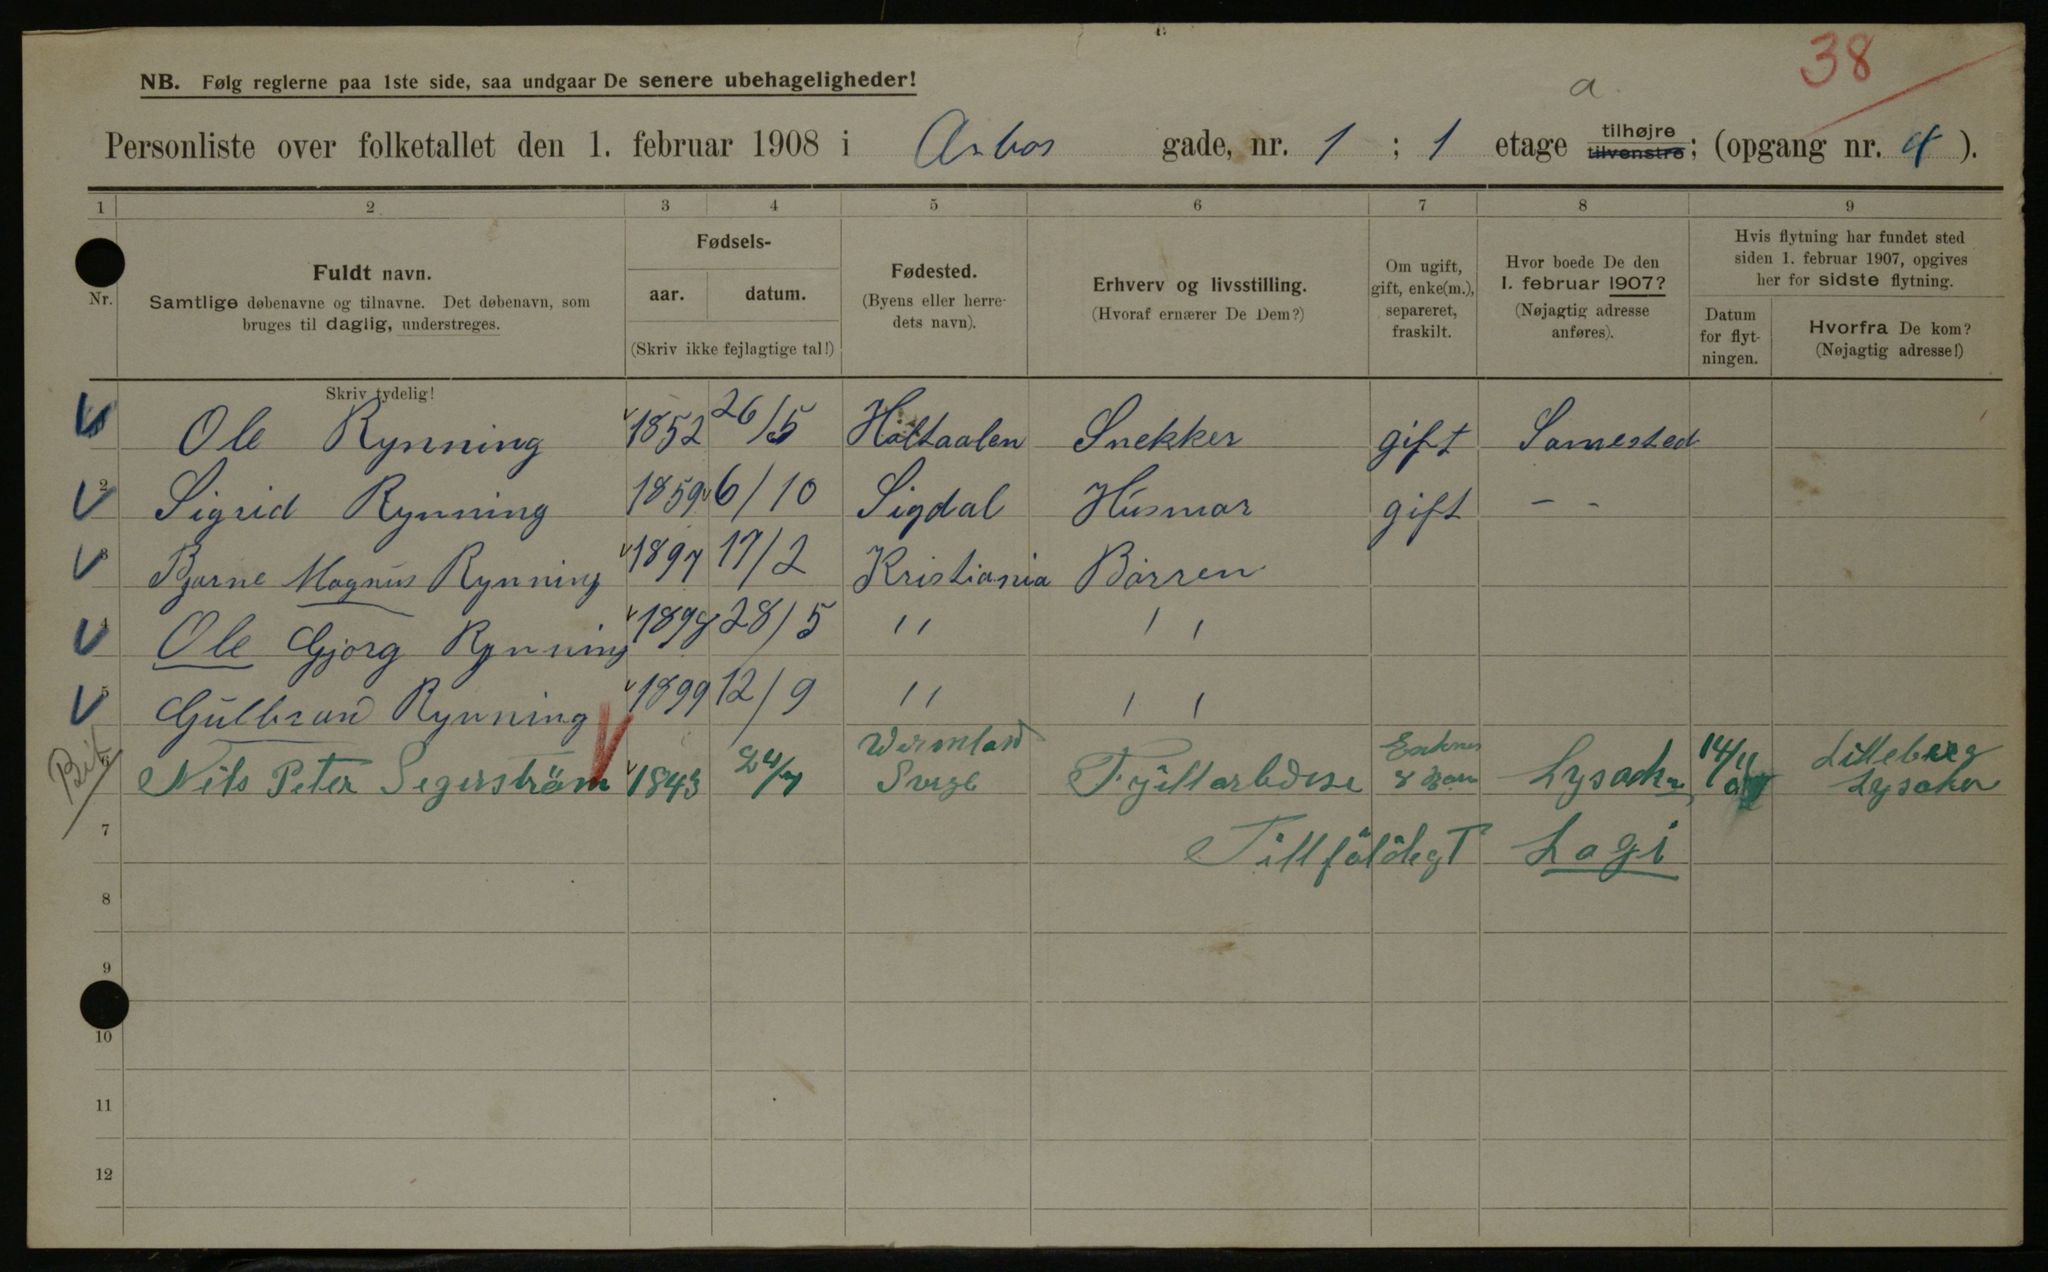 38
NB. Følg reglerne paa 1ste side, saa undgaar De senere ubehageligheder!
a.
Personliste over folketallet den 1. februar 1908 i Arbos gade, nr. 1 ; 1 etage tilhøjre tilvenstre; (opgang nr. ).
1 2 3 4 5 6 7 8 9
Nr.
Fuldt navn.
Samtlige døbenavne og tilnavne. Det døbenavn, som
bruges til daglig, understreges.
Fødsels-
aar. datum.
(Skriv ikke fejlagtige tal!)
Fødested.
(Byens eller herre-
dets navn).
Erhverv og livsstilling.
(Hvoraf ernærer De Dem?)
Om ugift,
gift, enke(m.),
separeret,
fraskilt.
Hvor boede De den
1. februar 1907?
(Nøjagtig adresse
anføres).
Hvis flytning har fundet sted
siden 1. februar 1907, opgives
her for sidste flytning.
Datum
for flyt-
ningen.
Hvorfra De kom?
(Nøjagtig adresse!)
Skriv tydelig!
Ole Rynning 1852 26/5 Holtaalen Snekker gift Samested
2 Sigrid Rynning 1859 6/10 Sigdal Husmor gift – -
3 Bjarne Magnus Rynning 1897 17/2 Kristiania Barren
4 Ole Gjorg Rynning 1898 28/5 " " "
5 Gulbrand Rynning 1899 12/9 " " "
6 Nils Peter Segerström 1843 24/7 Wermland Sverge Lysaker 14/11 Lilleberg Lysaker
7 Tillfäldegt Logi
8
9
10
11
12